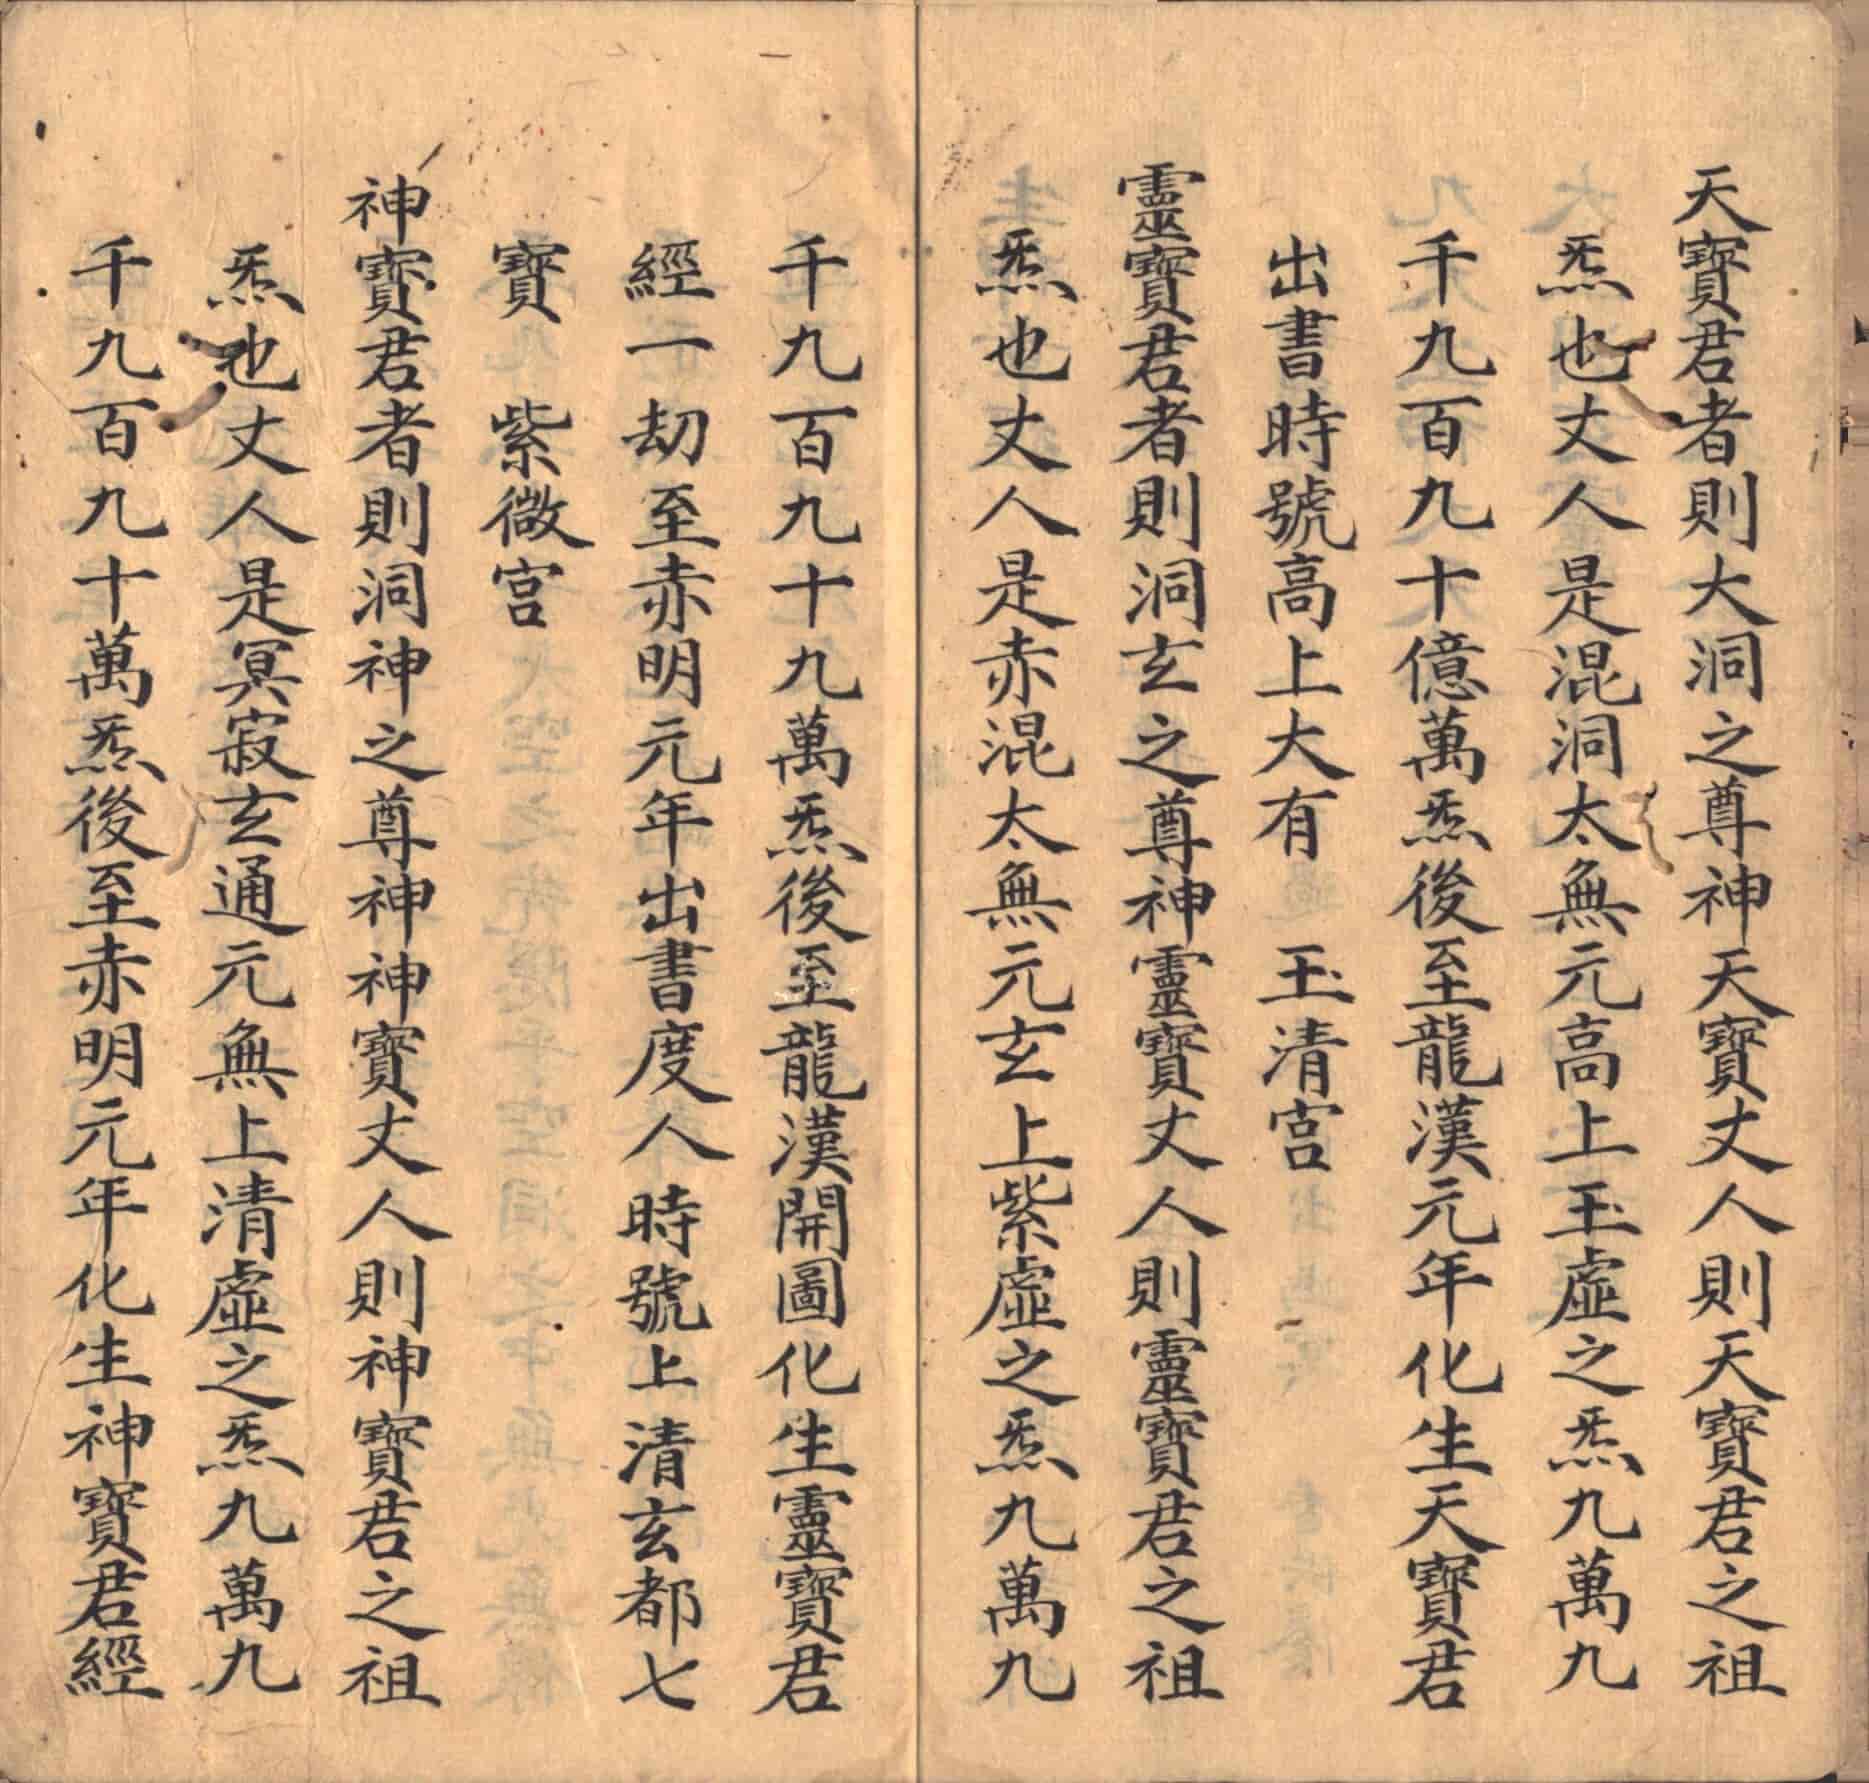 天寶君者則大洞之尊神天寶丈人則天寶君之祖
炁也丈人是混洞太無元高上玉虛之炁九萬九
千九百九十億萬炁後至龍漢元年化生天寶君
出書時號高上大有　玉清宮
靈寶君者則洞玄之尊神靈寶丈人則靈寶君之祖
炁也丈人是赤混太無元玄上紫虛之炁九萬九
千九百九十九萬炁後至龍漢開圖化生靈寶君
經一劫至赤明元年出書度人時號上清玄都七
寶　紫微宮
神寶君者則洞神之尊神神寶丈人則神寶君之祖
炁也丈人是冥寂玄通元無上清虛之炁九萬九
千九百九十萬炁後至赤明元年化生神寶君經